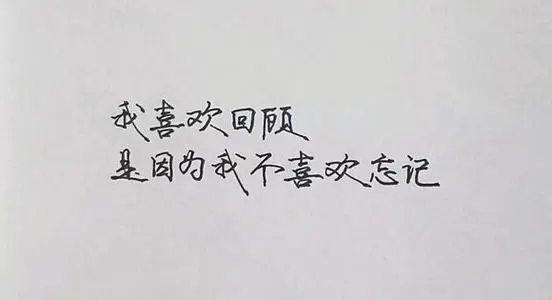 我喜欢回顾
是因为我不喜欢忘记